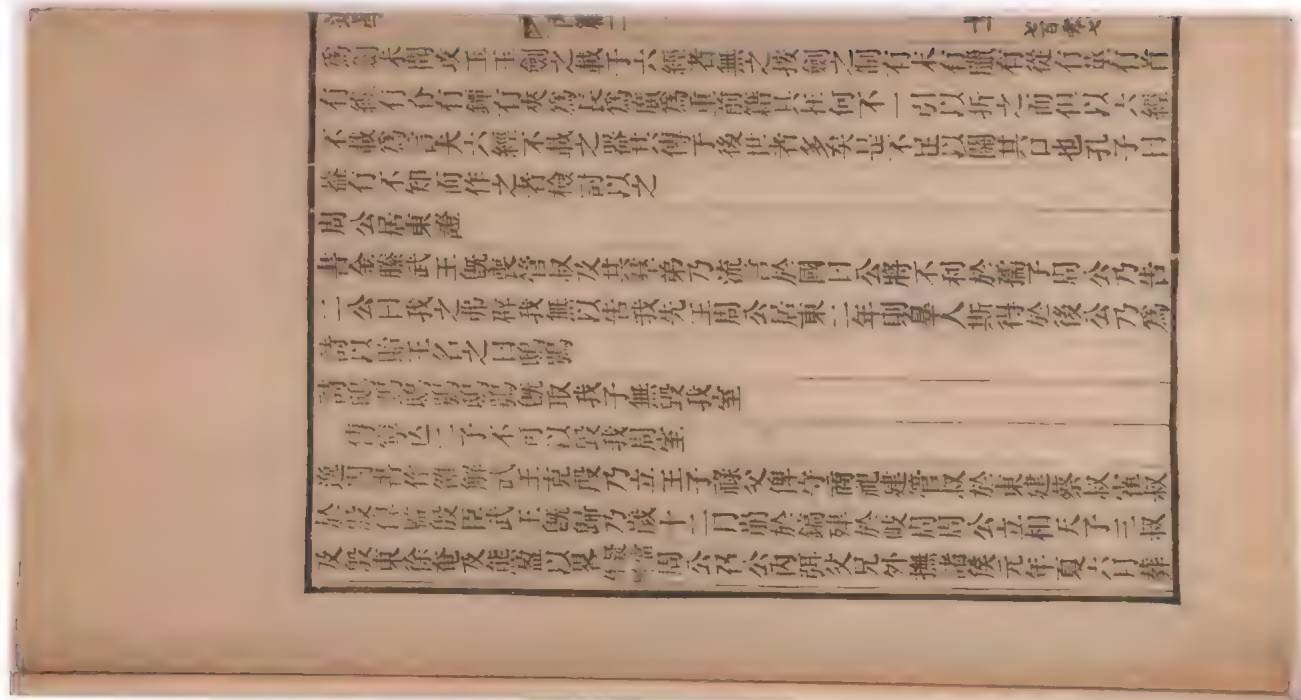 七百零七
為劍未聞攻玉玉劍之載于六經者無之按劍之制有木有臘有從有莖有首
有經有谷有鐔有夾為長為廣為重前籍具在何不一引以折之而但以六經
不載為言夫六經不載之器其傳于後世者多矣是不足以關其口也孔子曰
蓋有不知而作之者檢討以之
周公居東證
書金縢武王既喪管叔及其羣弟乃流言於國曰公將不利於孺子周公乃告
二公曰我之弗辟我無以告我先王周公居東二年則辠人斯得於後公乃為
詩以貽王名之曰鴟鴞
詩鴟鴞鴟鴞鴟鴞既取我子無毀我室
傳寧亡二子不可以毀我周室
逸周書作雒解武王克殷乃立王子祿父俾守商祀建管叔於東建蔡叔霍叔
於殷俾監殷臣武王既歸乃歲十二月崩於鎬肂於岐周周公立相天子三叔
及殷東徐奄及熊盈以畧周公召公內弭父兄外撫諸侯元年夏六月葬